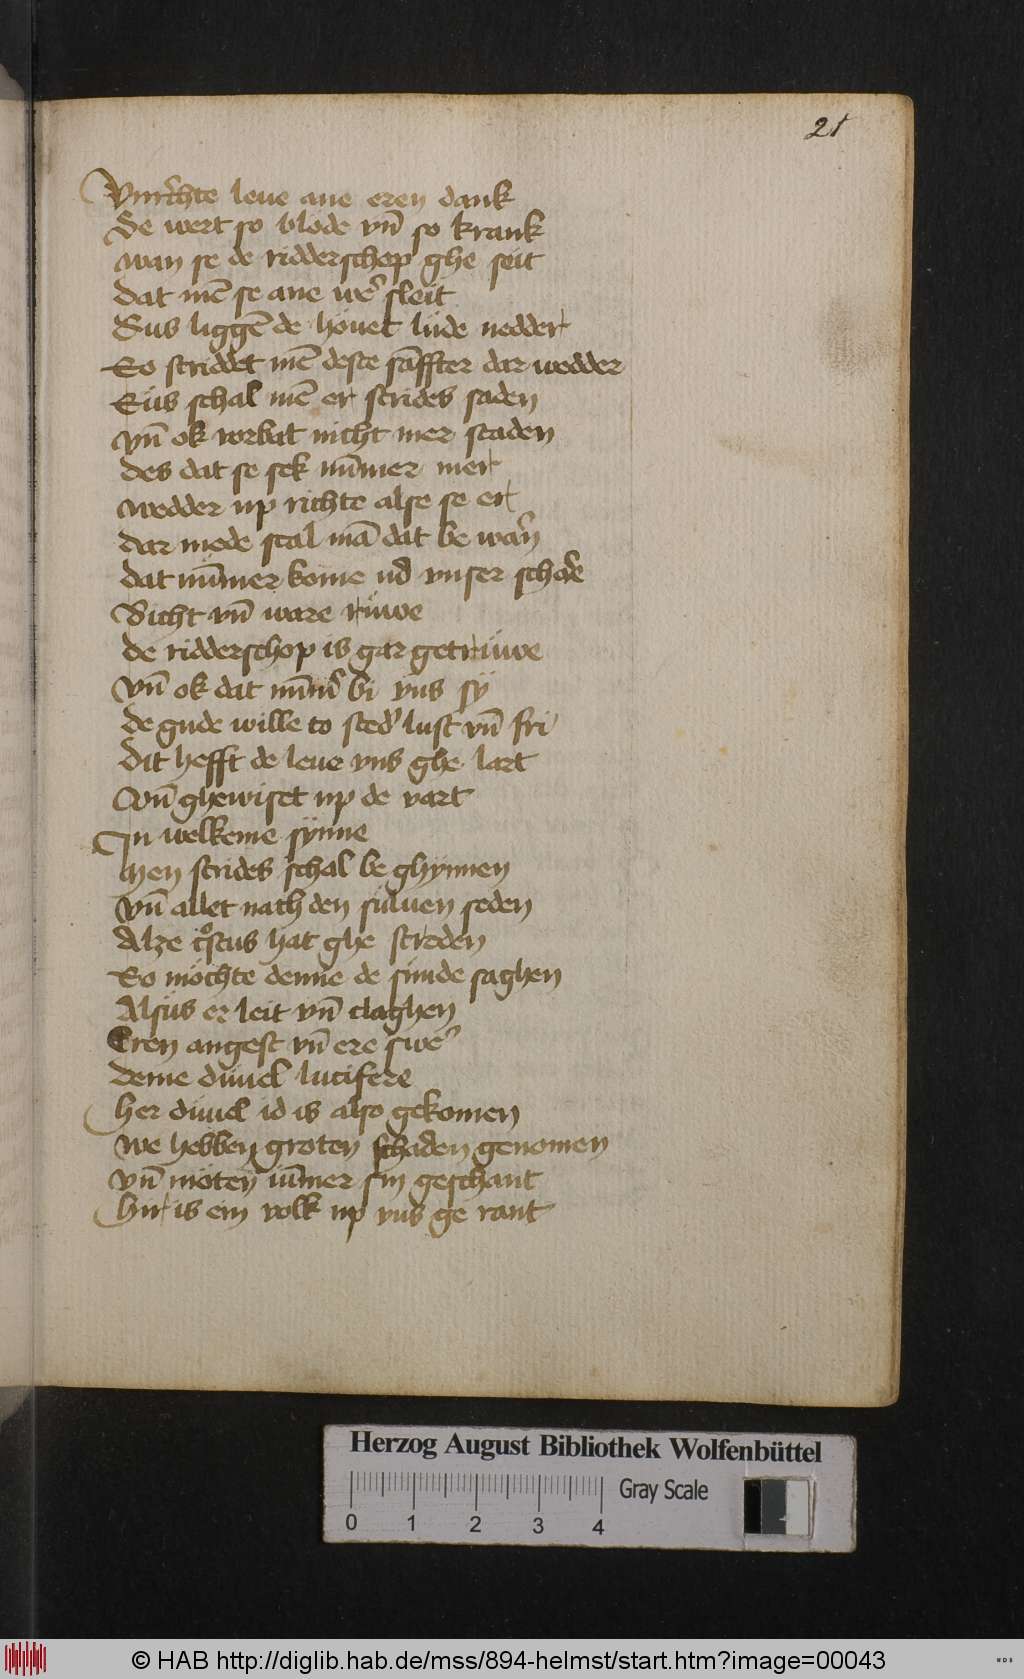 21
Vnrechte leue ane eren dank
De wert so blode vn̄ so krank
wan se de ridderschop ghe seit
dat mē se ane we͛ sleit
Sus liggē de hövet lüde nedder
So striddet mē deste sāffter dar wedder
Süs schal mē er strides saden
vn̄ ok vorbat nicht mer staden
des dat se sek nūmer mer
wedder up richte alse se er
dar mede scal mā dat be war͛n
dat nūmer kome ud vnser schar͛e
Bicht vn̄ ware rüwe
de ridderschop is gar getrüwe
vn̄ ok dat nūm͛ bi vns sÿ
de gude wille to sted͛ lust vn̄ fri
dit hefft de leue vns ghe lart
Vn̄ ghewiset up de vart
In welkeme sÿnne
Men strides schal be ghÿnnen
vn̄ allet nach den sülven seden
Alze cͦstus hat ghe streden
So möchte denne de sunde saghen
Alsüs er leit vn̄ claghen
Eren angest vn̄ ere swe͛
deme düuel lucifere
Her düuel id is also gekomen
we hebben groten schaden genomen
vn̄ möten iūmer sin geschant
Hir is ein volk up vns ge rant
Herzog August Bibliothek Wolfenbüttel
Gray Scale
0 1 2 3 4
© HAB http://diglib.hab.de/mss/894-helmst/start.htm?image=00043